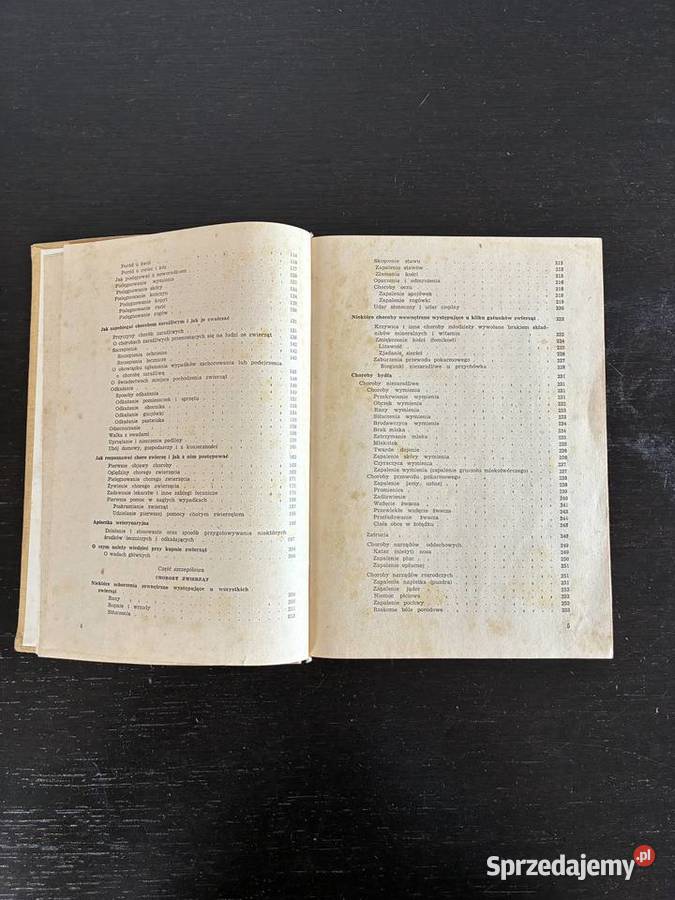 Poród u świń
Poród u owiec i kóz
Jak postępować z noworodkiem
Pielęgnowanie wymienia
Pielęgnowanie skóry
Pielęgnowanie kończyn
Pielęgnowanie kopyt
Pielęgnowanie racic
Pielęgnowanie rogów
Jak zapobiegać chorobom zaraźliwym i jak je zwalczać
Przyczyny chorób zaraźliwych
O chorobach zaraźliwych przenoszących się na ludzi ze zwierząt
Szczepienia
Szczepienia ochronne
Szczepienia lecznicze
O obowiązku zgłaszania wypadków zachorowania lub podejrzenia
o chorobę zaraźliwą
O świadectwach miejsca pochodzenia zwierząt
Odkażanie
Sposoby odkażania
Odkażanie pomieszczeń i sprzętu
Odkażanie obornika
Odkażanie gnojówki
Odkażanie pastwiska
Odszczurzanie
Walka z owadami
Uprzątanie i niszczenie padliny
Ubój domowy, gospodarczy i z konieczności
Jak rozpoznawać chore zwierzę i jak z nim postępować
Pierwsze objawy choroby
Oględziny chorego zwierzęcia
Pielęgnowanie chorego zwierzęcia
Żywienie chorego zwierzęcia
Zadawanie leków i inne zabiegi lecznicze
Pierwsza pomoc w nagłych wypadkach
Poskramianie zwierząt
Udzielanie pierwszej pomocy chorym zwierzętom
Apteczka weterynaryjna
Działanie i stosowanie oraz sposób przygotowywania niektórych
środków leczniczych i odkażających
O czym należy wiedzieć przy kupnie zwierząt
O wadach głównych
Część szczegółowa
CHOROBY ZWIERZĄT
Niektóre schorzenia zewnętrzne występujące u wszystkich
zwierząt
Rany
Ropnie i wrzody
Stłuczenia
4
Skręcenie stawu 215
Zapalenie stawów
Złamania kości
Oparzenia i odmrożenia
Choroby oczu
Zapalenie spojówek
Zapalenie rogówki
Udar słoneczny i udar cieplny 220
Niektóre choroby wewnętrzne występujące u kilku gatunków zwierząt
Krzywica i inne choroby młodzieży wywołane brakiem skład-
ników mineralnych i witamin
Zmiękczenie kości (łomikost)
Lizawość
Zjadanie sierści
Zaburzenia przewodu pokarmowego
Biegunki niezaraźliwe u przychówka
Choroby bydła 231
Choroby niezaraźliwe 231
Choroby wymienia 231
Przekrwienie wymienia
Obrzęk wymienia
Rany wymienia
Stłuczenia wymienia
Brodawczyca wymienia
Brak mleka
Zatrzymanie mleka
Mlekotok
Twarde dojenie
Zapalenie skóry wymienia
Czyraczyca wymienia
Zapalenie wymienia (zapalenie gruczołu mlekotwórczego)
Choroby przewodu pokarmowego
Zapalenie jamy ustnej
Promienica
Zadławienie
Wzdęcie żwacza
Przewlekłe wzdęcie żwacza
Przeładowanie żwacza
Ciała obce w żołądku
Zatrucia 248
Choroby narządów oddechowych
Katar (nieżyt) nosa
Zapalenie płuc
Zapalenie opłucnej
Choroby narządów rozrodczych 251
Zapalenie napletka (puzdra) 251
Zapalenie jąder
Niemoc płciowa
Zapalenie pochwy
Rzekome bóle porodowe 253
5
Sprzedajemy.pl